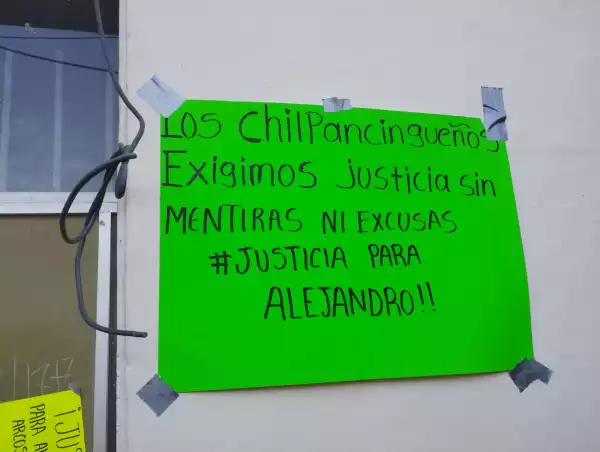 Los ChilPancingueños
Exigimos justicia sin
MENTIRAS NI EXCUSAS
#JUSTICIA PARA
ALEJANDRO!!
¡JUS
PARA A
ARCOS